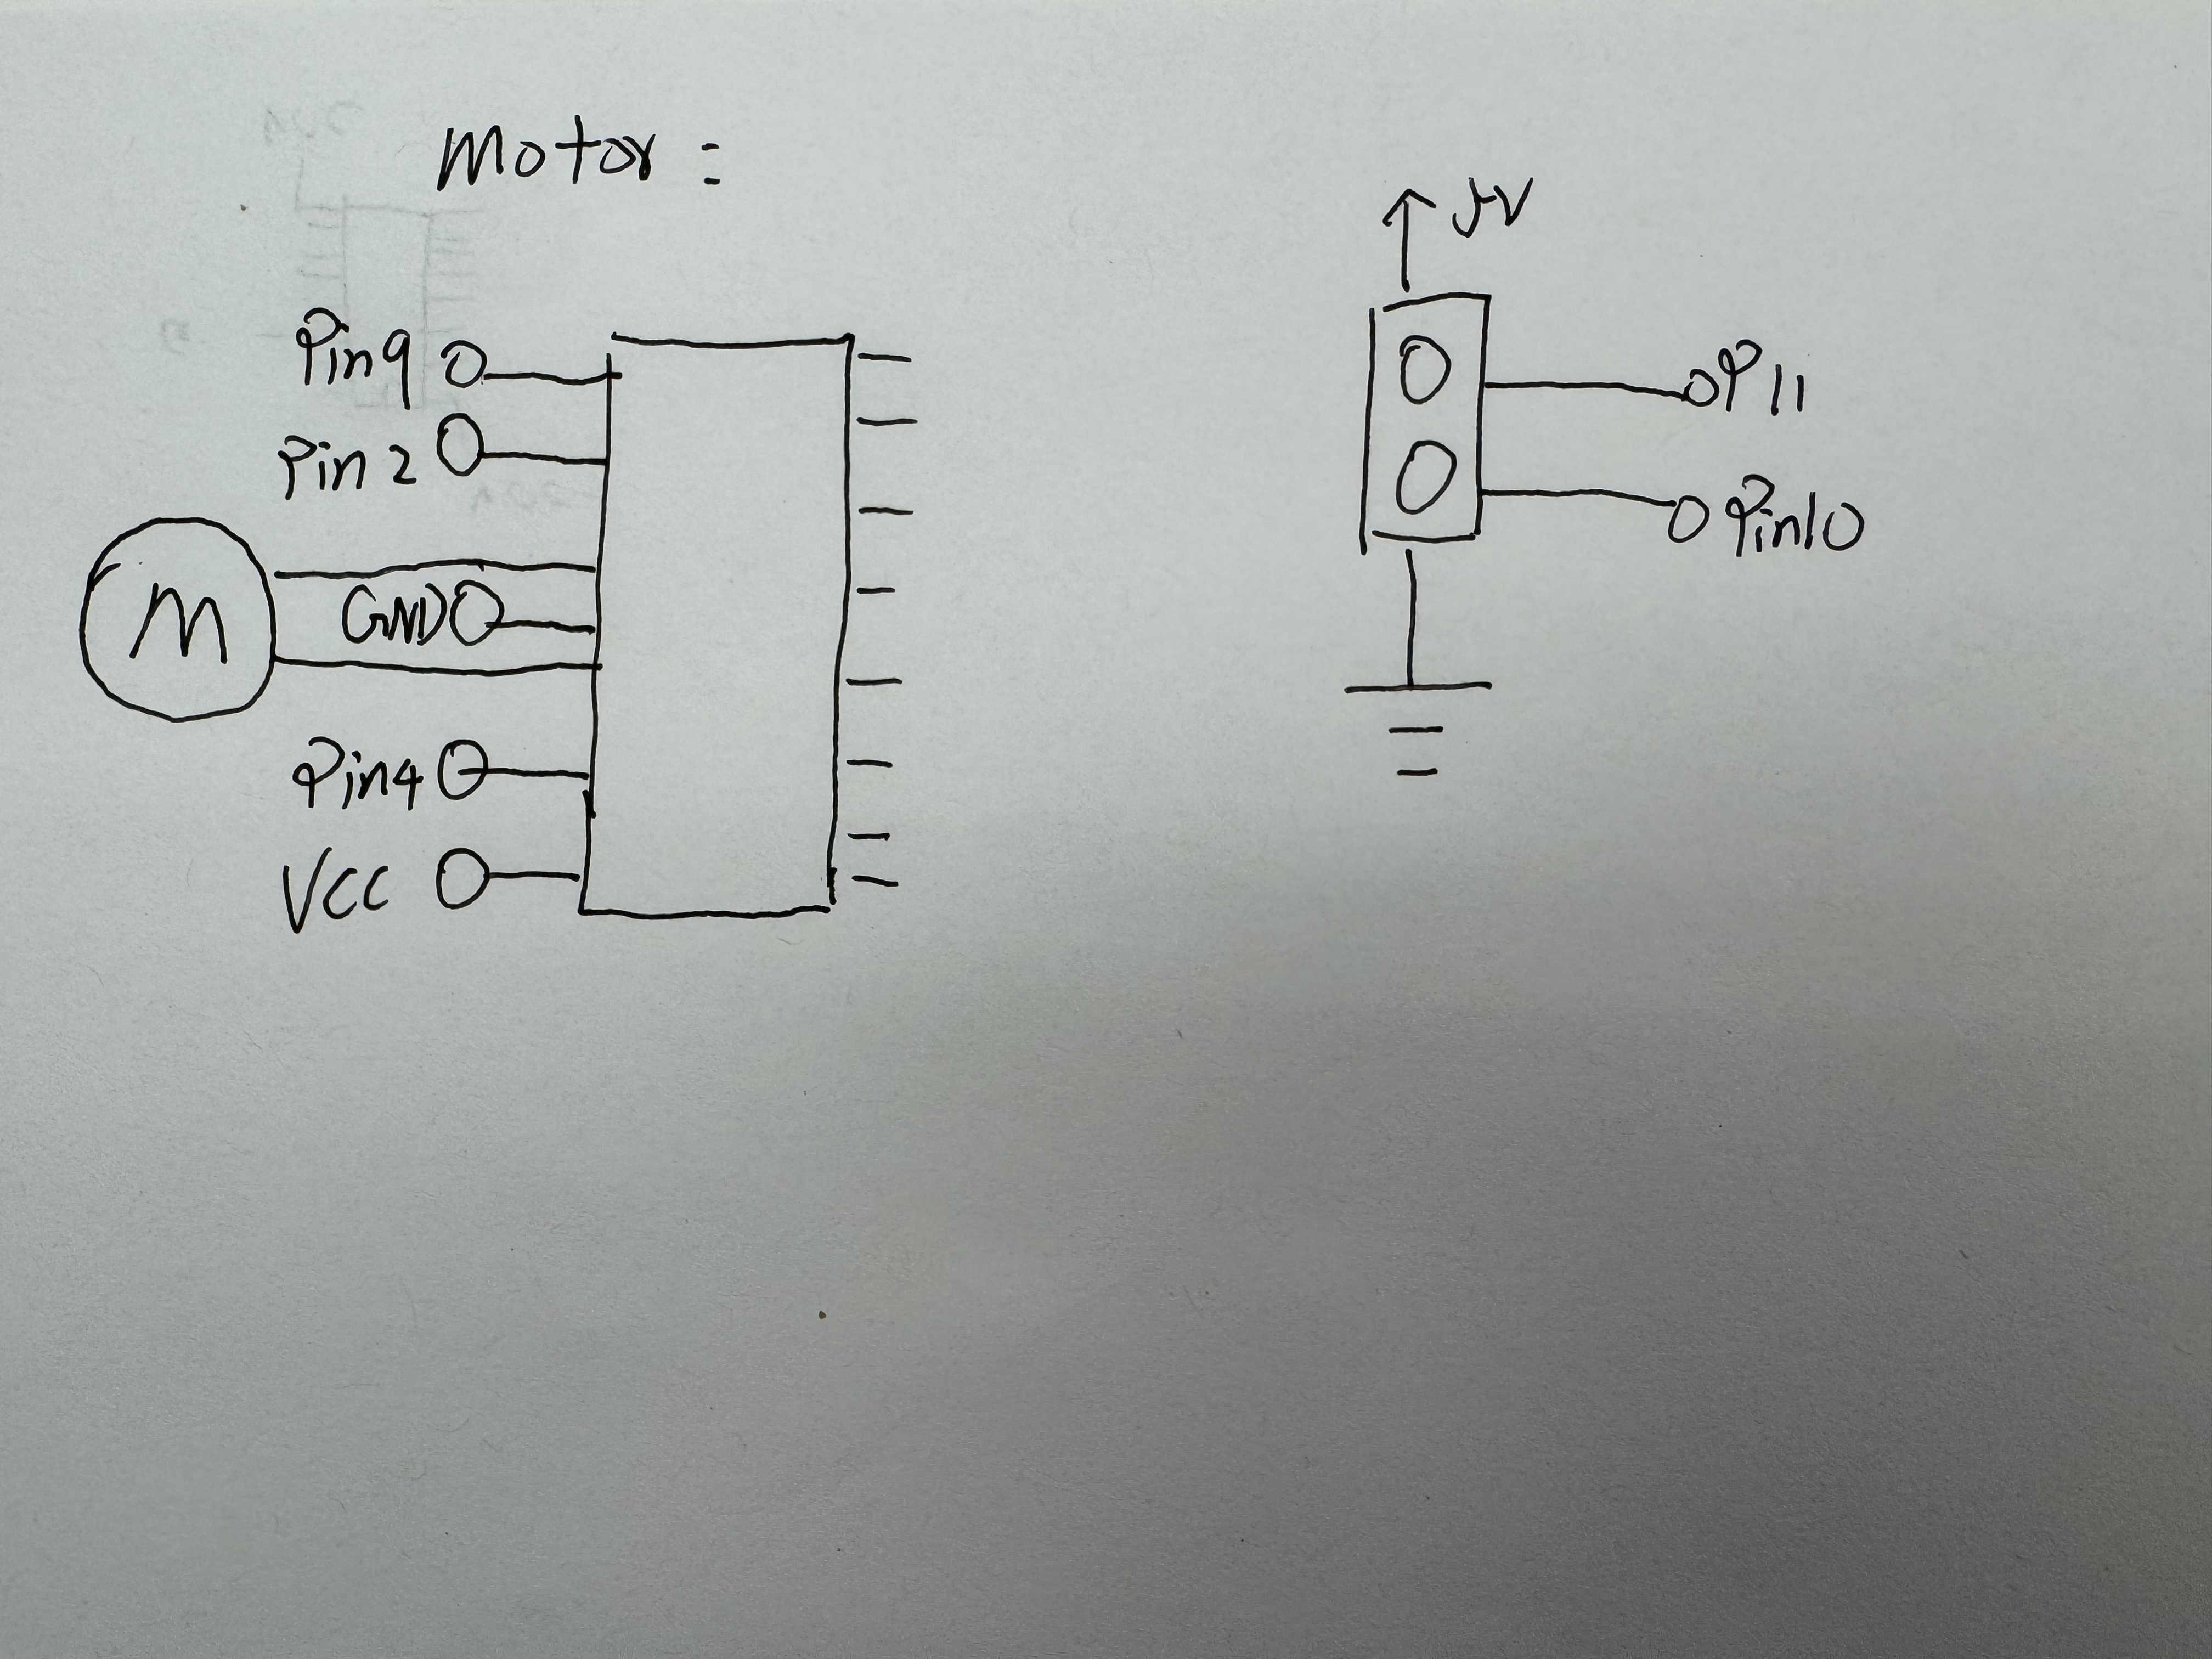 Motor :
Pin9
Pin 2
M
GND
Pin4
VCC
5V
P11
Pin10